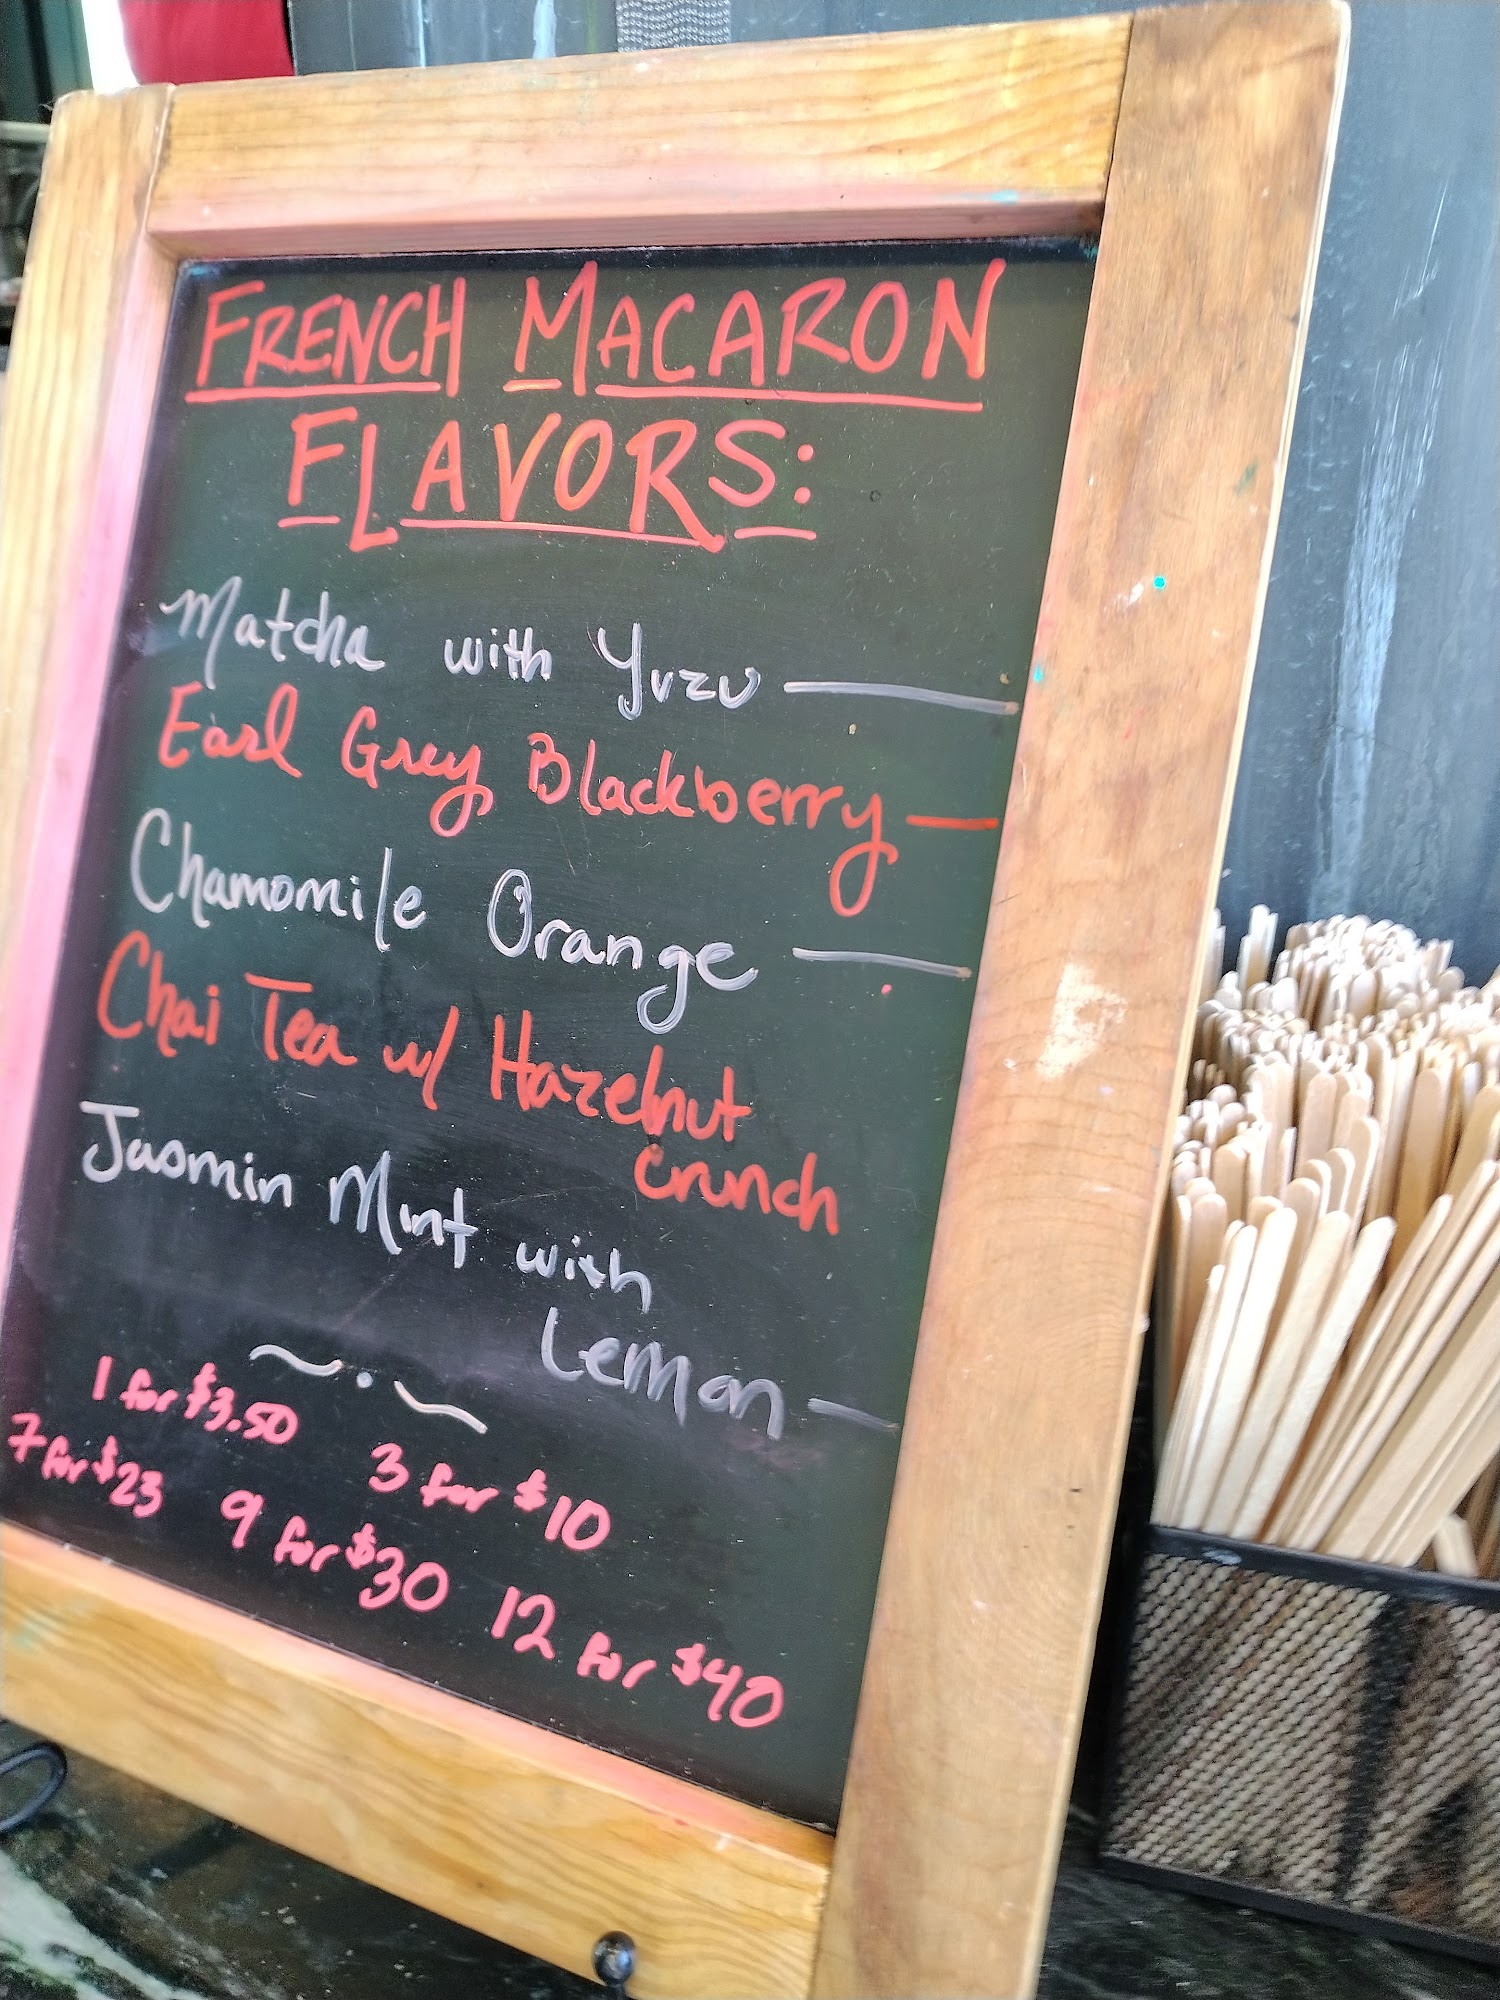 FRENCH MACARON
FLAVORS:
Matcha with Yuzu
Earl Grey Blackberry
Chamomile Orange
Chai Tea w/ Hazelnut
crunch
Jasmin Mint with
Lemon
1 for $3.50 3 for $10
7 for $23 9 for $30 12 for $40